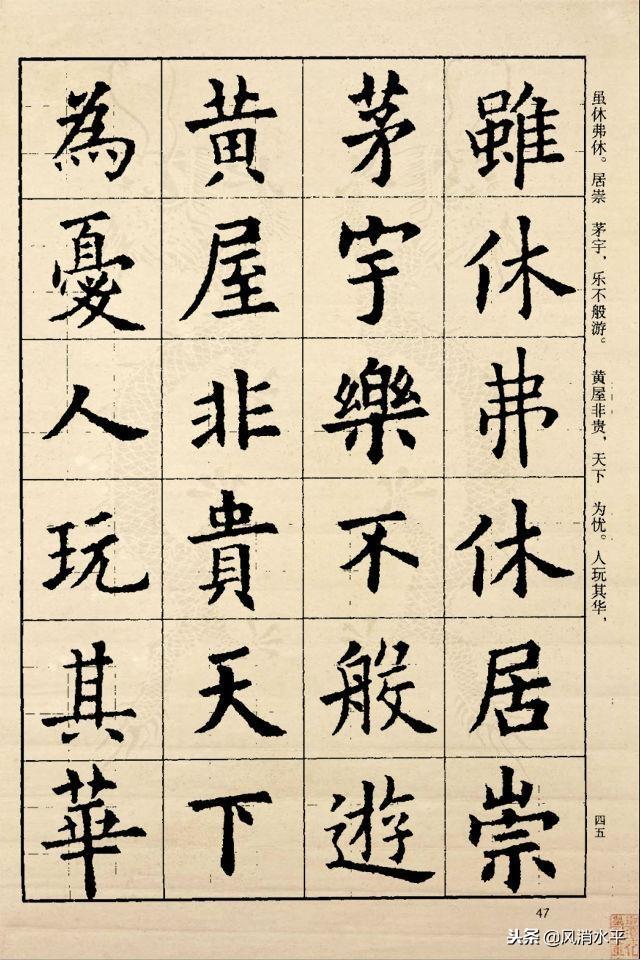 虽休弗休。居崇　茅宇，乐不般游。　黄屋非贵，天下　为忧。人玩其华，
四五
雖休弗休居崇
茅宇樂不般遊
黄屋非貴天下
為憂人玩其華
47
头条 @风消水平